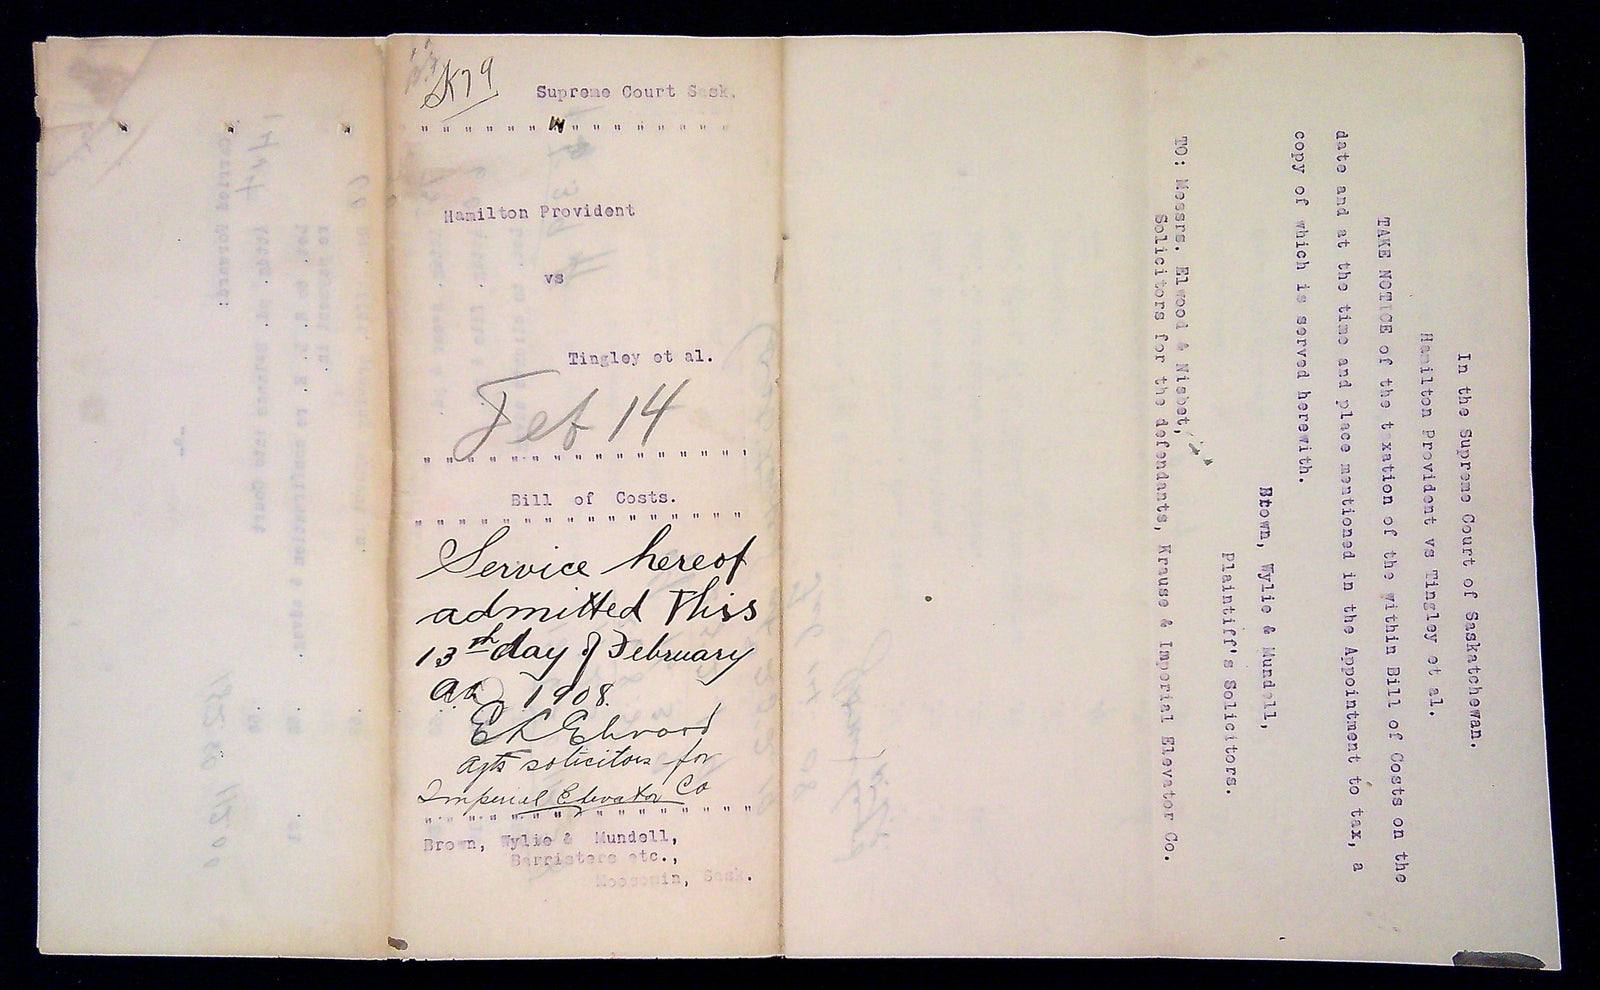 K79
Supreme Court Sask.
" " " " " " " " " " " " " " "
Hamilton Provident
vs
Tingley et al.
Feb 14
" " " " " " " " " " " " " " "
Bill of Costs.
" " " " " " " " " " " " " " "
Service hereof
admitted this
13th day of February
A.D. 1908.
E L Elwood
Agts solicitors for
Imperial Elevator Co
" " " " " " " " " " " " " " "
Brown, Wylie & Mundell,
Barristers etc.,
Moosomin, Sask.
In the Supreme Court of Saskatchewan.
Hamilton Provident vs Tingley et al.
TAKE NOTICE of the taxation of the within Bill of Costs on the
date and at the time and place mentioned in the Appointment to tax, a
copy of which is served herewith.
Brown, Wylie & Mundell,
Plaintiff's Solicitors.
TO: Messrs. Elwood & Nisbet,
Solicitors for the defendants, Krause & Imperial Elevator Co.